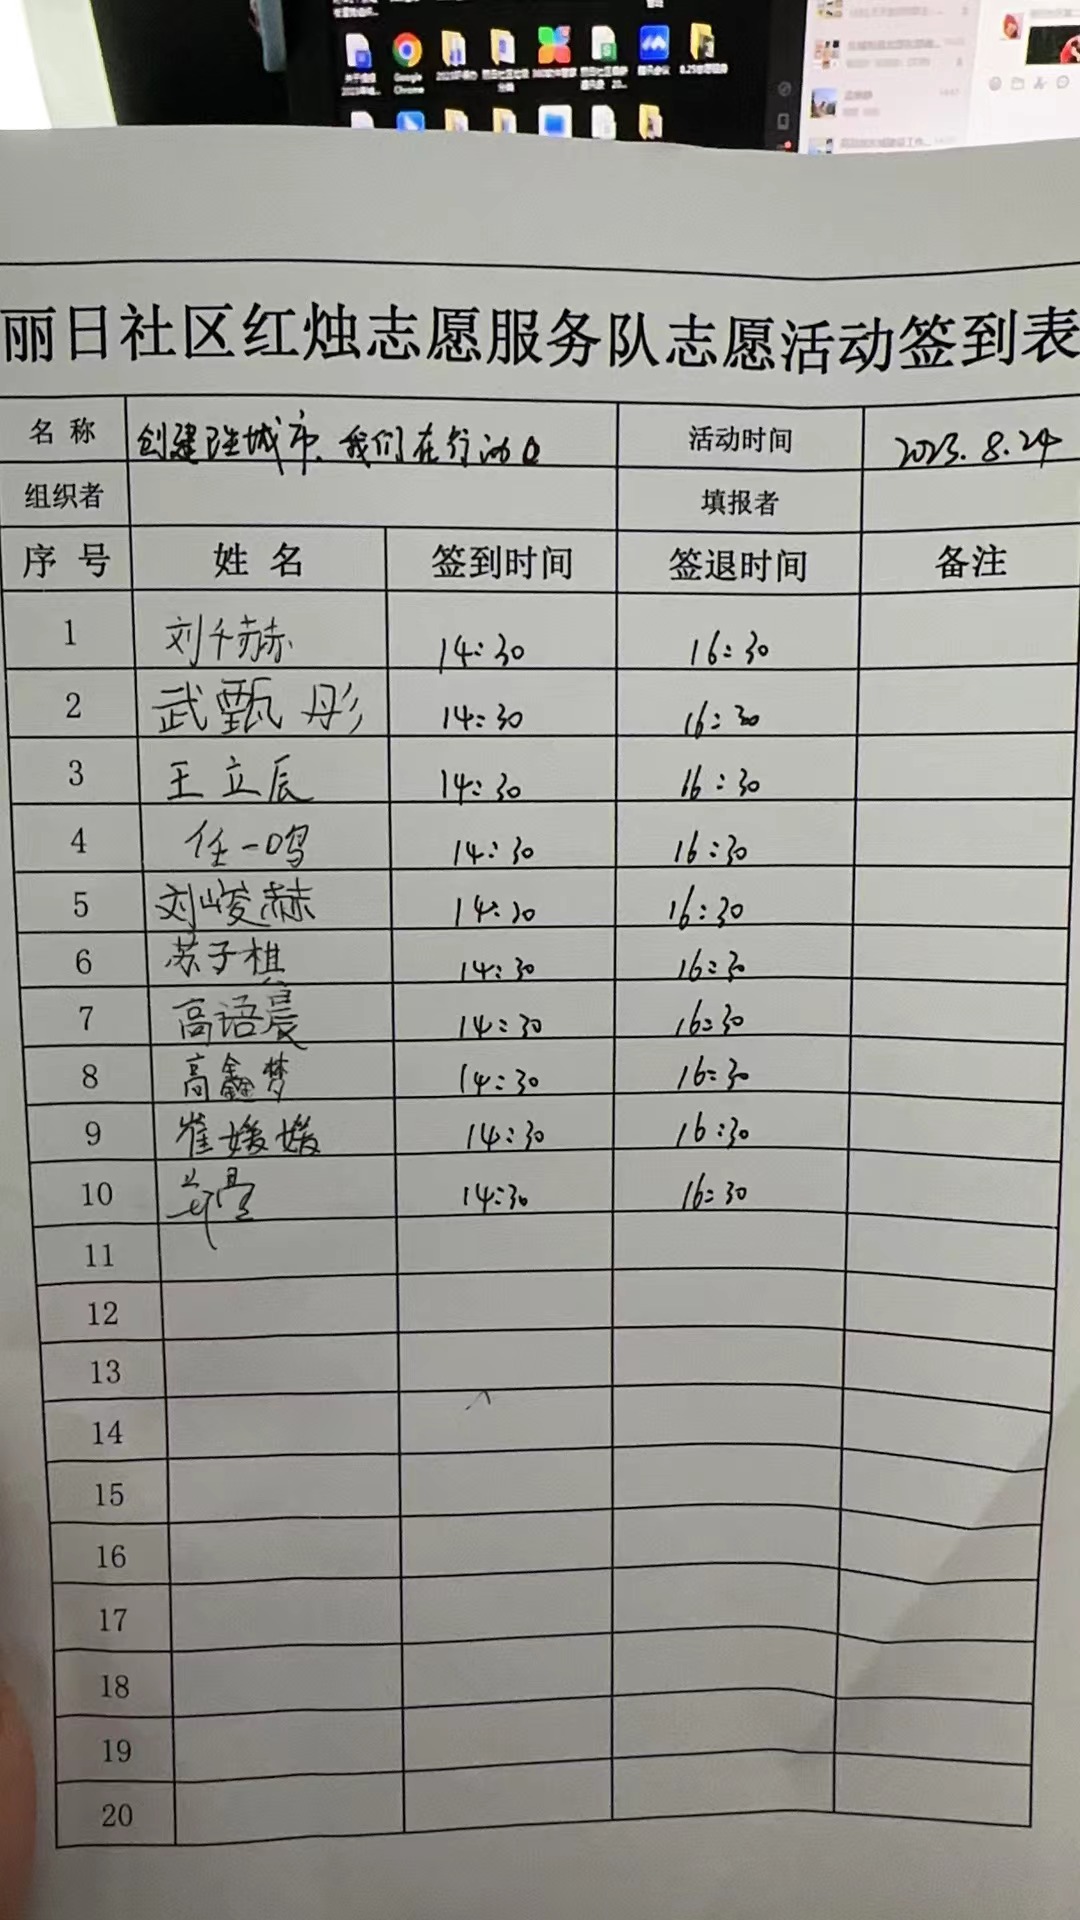 Google
Chrome
丽日社区红烛志愿服务队志愿活动签到表
名 称 创建卫生城市、我们在行动 活动时间 2023.8.24
组织者 填报者
序 号 姓 名 签到时间 签退时间 备注
1 刘千赫 14:30 16:30
2 武甄彤 14:30 16:30
3 王立辰 14:30 16:30
4 任一鸣 14:30 16:30
5 刘峻赫 14:30 16:30
6 苏子棋 14:30 16:30
7 高语晨 14:30 16:30
8 高鑫梦 14:30 16:30
9 崔媛媛 14:30 16:30
10 14:30 16:30
11
12
13
14
15
16
17
18
19
20